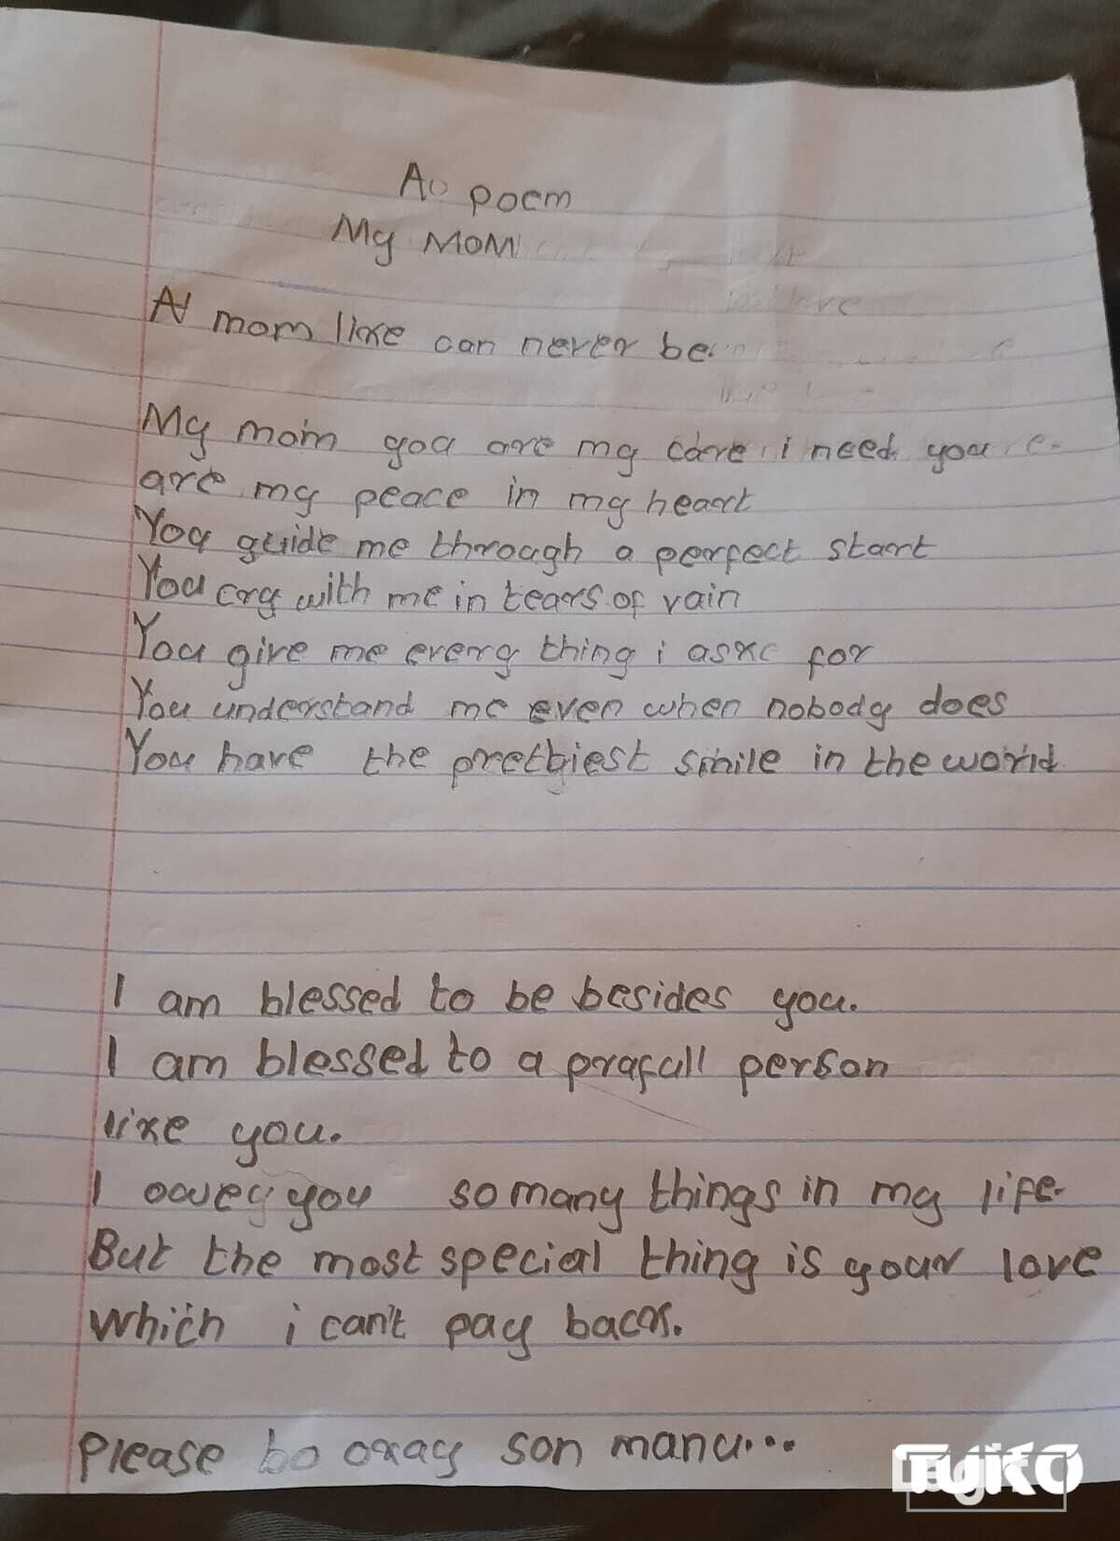 A poem
My MOM
A mom like can never be
My mom you are my care i need you
are my peace in my heart
You guide me through a perfect start
You cry with me in tears of vain
You give me every thing i ask for
You understand me even when nobody does
You have the prettiest smile in the world
I am blessed to be besides you.
I am blessed to a prafull person
like you.
I owe you so many things in my life
But the most special thing is your love
which i can't pay back.
please be okay son mana...